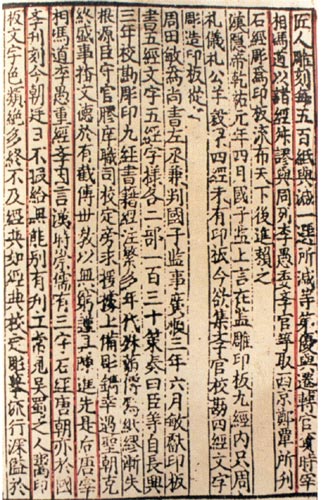 匠人雕刻每五百紙與減一選所減等第優與選轉官資時宰
相馮道以諸經舛謬與同列李愚委學官等取西京鄭覃所刋
石經雕為印板流布天下後進賴之
漢隱帝乾祐元年四月國子監上言在監雕印板九經內只周
禮儀禮公羊穀梁四經未有印板今欲集學官校勘四經文字
雕造印板從之
周田敏為尚書左丞兼判國子監事廣順三年六月敏獻印板
書五經文字五經字樣各二部一百三十策奏曰臣等自長興
三年校勘雕印九經書籍經注繁多年代殊邈傳寫紕繆漸失
根源臣守官膠庠職司校定旁求援據上備雕鐫幸遇聖朝克
終盛事播文德於有截傳世教以無窮謹具陳進先是後唐宰
相馮道李愚重經學因言漢時崇儒有三字石經唐朝亦於國
學刊刻今朝廷日不暇給無能別有刊立常見吳蜀之人鬻印
板文字色類絕多終不及經典如經典校定雕摹流行深益於